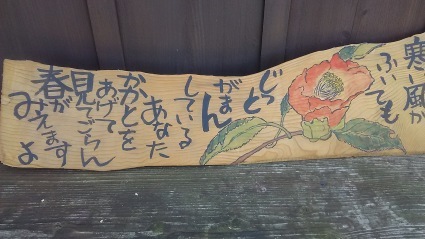 寒い風が
ふいても
じっと
がまん
している
あなた
かかとを
あげて
見てごらん
春が
みえます
よ